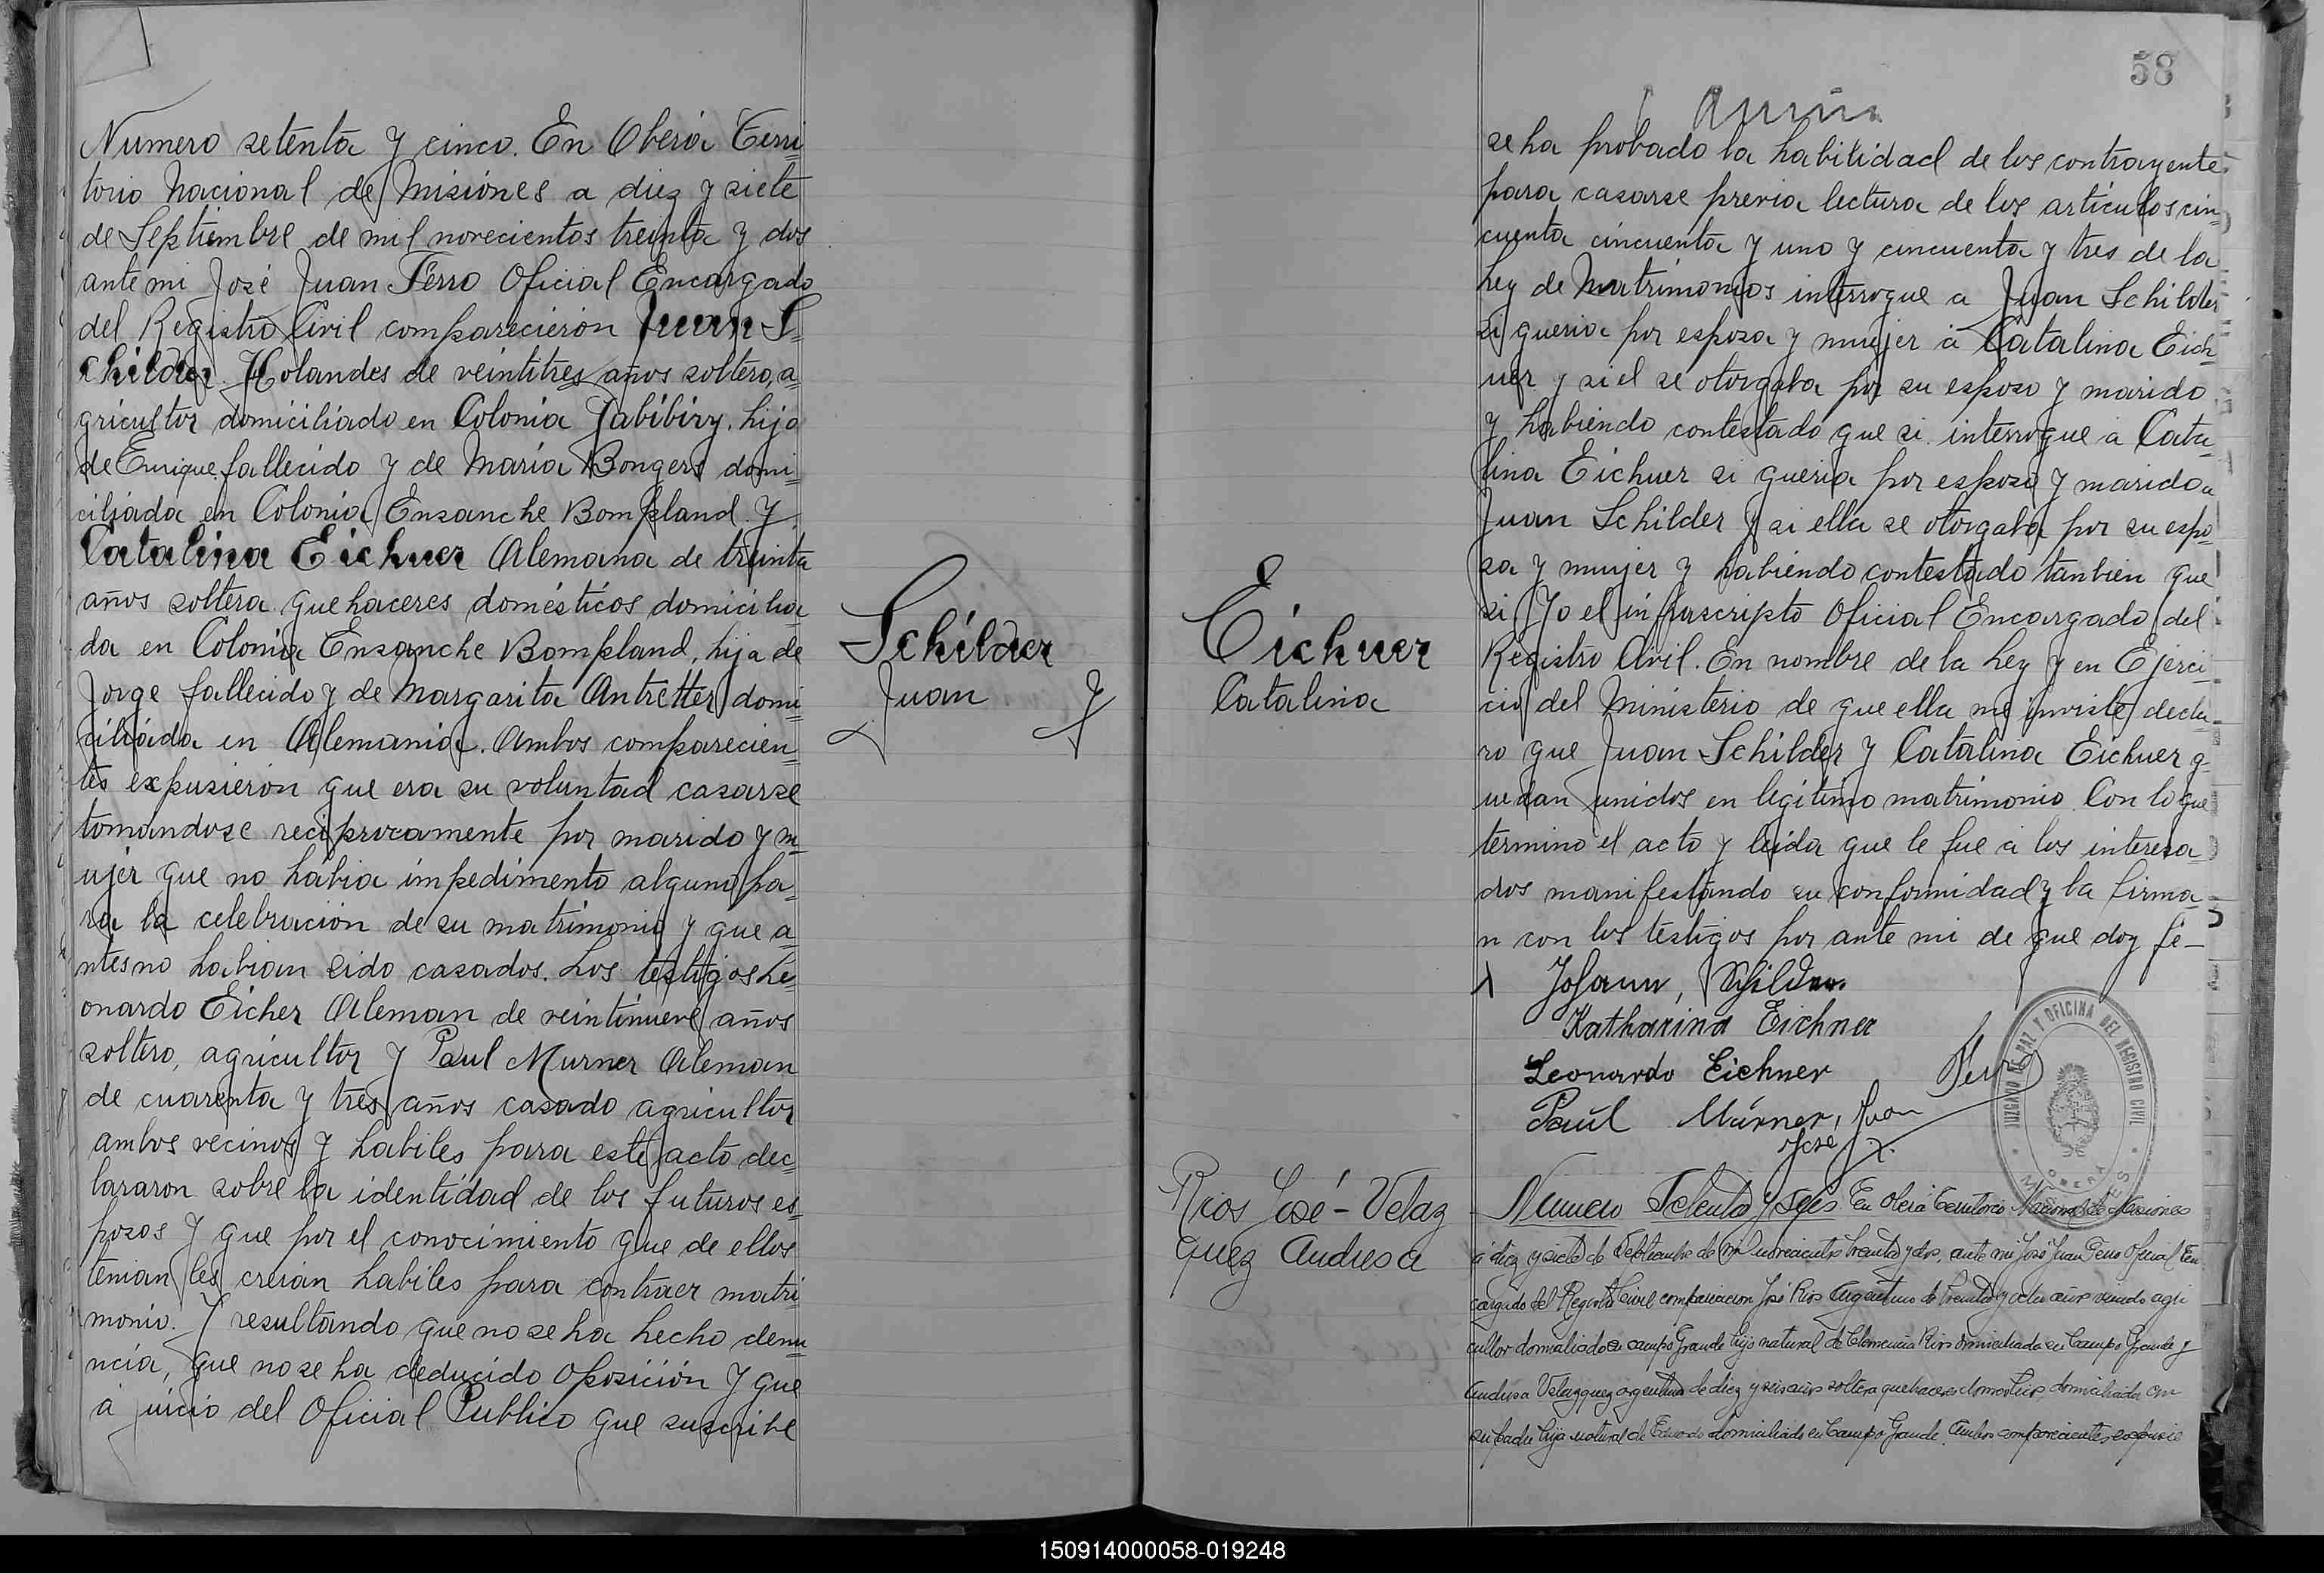 Numero setenta y cinco. En Oberá Terri-
torio Nacional de Misiones a diez y siete
de Septiembre de mil novecientos treinta y dos
ante mi José Juan Ferro Oficial Encargado
del Registro Civil comparecierón Juan S-
childer. Holandes de veintitres años soltero, a-
gricultor domiciliado en Colonia Yabibiry, hijo
de Enrique fallecido y de María Bongers domi-
ciliada en Colonia Ensanche Bompland. Y
Catalina Eichuer Alemana de treinta
años soltera quehaceres domésticos domicilia
da en Colonia Ensanche Bompland, hija de
Jorge fallecido y de Margarita Antretter domi-
ciliada en Alemania. Ambos comparecien-
tes expusierón que era su voluntad casarse
tomandose reciprocamente por marido y m-
ujer que no habia impedimento alguno pa-
ra la celebración de su matrimonio y que a-
ntes no habian sido casados. Los testigos Le-
onardo Eicher Aleman de veintinueve años
soltero, agricultor y Paul Murner Aleman
de cuarenta y tres años casado agricultor
ambos vecinos y habiles para este acto dec-
lararon sobre la identidad de los futuros es-
posos y que por el conocimiento que de ellos
tenian les creian habiles para contraer matri-
monio. Y resultando que no se ha hecho denu-
ncia, que no se ha deducido oposición y que
a juicio del Oficial Publico que suscribe
Schilder
Juan y
Eichuer
Catalina
58
se ha probado la habilidad de los contrayentes
para casarse previa lectura de los artículos cin-
cuenta cincuenta y uno y cincuenta y tres de la
Ley de Matrimonios interrogue a Juan Schilder
si queria por esposa y mujer á Catalina Eich
uer y si el se otorgaba por su esposo y marido
y habiendo contestado que si interrogue á Cata-
lina Eichuer si queria por esposo y marido a
Juan Schilder y si ella se otorgaba por su espo-
sa y mujer y habiendo contestado tanbien que
si Yo el infrascripto Oficial Encargado del
Registro Civil. En nombre de la Ley y en Ejerci-
cio del Ministerio de que ella me inviste decla-
ro que Juan Schilder y Catalina Eichuer q-
uedan unidos en legitimo matrimonio. Con lo que
termino el acto y leida que le fue á los interesa
dos manifestando su conformidad y la firma-
n con los testigos por ante mi de que doy fé-
Johann, Schilder.
Katharina Eichner
Leonardo Eichner
Paul Mürner, Juan
José
JUZGADO DE PAZ Y OFICINA DEL REGISTRO CIVIL
OBERA
MISIONES
Rios José - Velaz
quez Andresa
Numero Setenta y seis En Oberá Territorio Nacional de Misiones
á diez y siete de Septiembre de mil novecientos treinta y dos, ante mi José Juan Ferro Oficial En
cargado del Registro Civil comparecieron José Rios Argentino de treinta y ocho años viudo agri
cultor domiciliado en Campo Grande hijo natural de Clemencia Rios domiciliada en Campo Grande y
Andresa Velazquez argentina de diez y seis años soltera quehaceres domesticos, domiciliada con
su padre hija natural de domiciliado en Campo Grande. Ambos comparecientes expusie
150914000058-019248